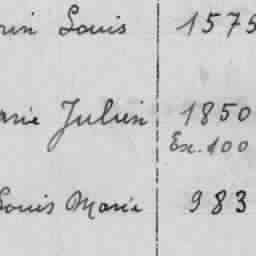 Louis 1575
Julien 1850
Ex. 100
Louis Marie 983